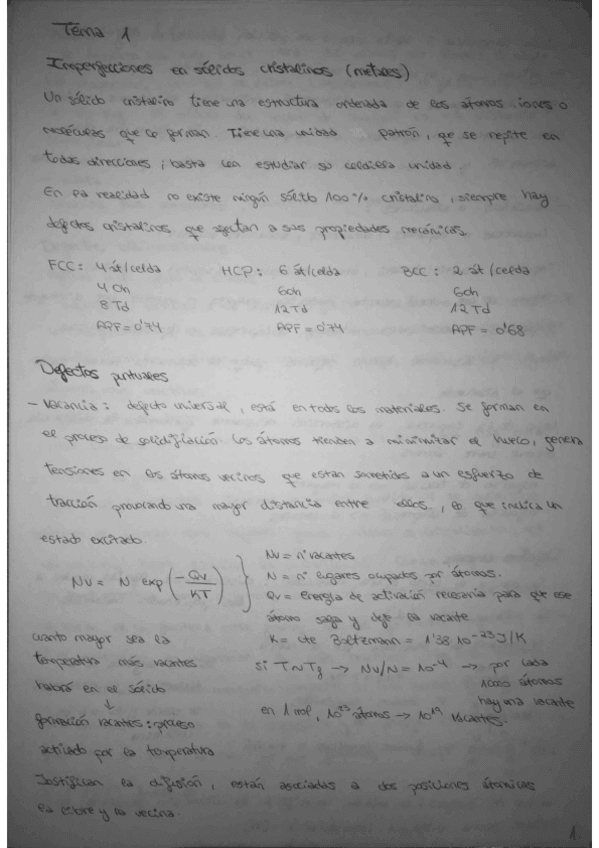 Tema 1
Imperfecciones en sólidos cristalinos (metales)
Un sólido cristalino tiene una estructura ordenada de los átomos, iones o
moléculas que lo forman. Tiene una unidad patrón, que se repite en
todas direcciones, basta con estudiar su celdilla unidad.
En la realidad no existe ningún sólido 100% cristalino, siempre hay
defectos cristalinos que afectan a sus propiedades mecánicas.
FCC: 4 át/celda HCP: 6 át/celda BCC: 2 át/celda
4 Oh 6oh 6oh
8 Td 12 Td 12 Td
APF = 0'74 APF = 0'74 APF = 0'68
Defectos puntuales
- Vacancia: defecto universal, está en todos los materiales. Se forman en
el proceso de solidificación. Los átomos tienden a minimizar el hueco, genera
tensiones en los átomos vecinos que estan sometidos a un esfuerzo de
tracción provocando una mayor distancia entre ellos, lo que indica un
estado excitado.
Nv = N exp(-Qv/KT)
Nv = nº vacantes
N = nº lugares ocupados por átomos.
Qv = Energía de activación necesaria para que ese
átomo salga y deje la vacante
K = cte Boltzmann = 1'38 10^-23 J/K
cuanto mayor sea la
temperatura más vacantes
habrá en el sólido
↓
formación vacantes: proceso
activado por la temperatura
si T~Tf → Nv/N = 10^-4 → por cada
átomos
hay una vacante
en 1 mol, 10^23 átomos → 10^19 vacantes.
Justifican la difusión, están asociadas a dos posiciones átomicas
la libre y la vecina.
1